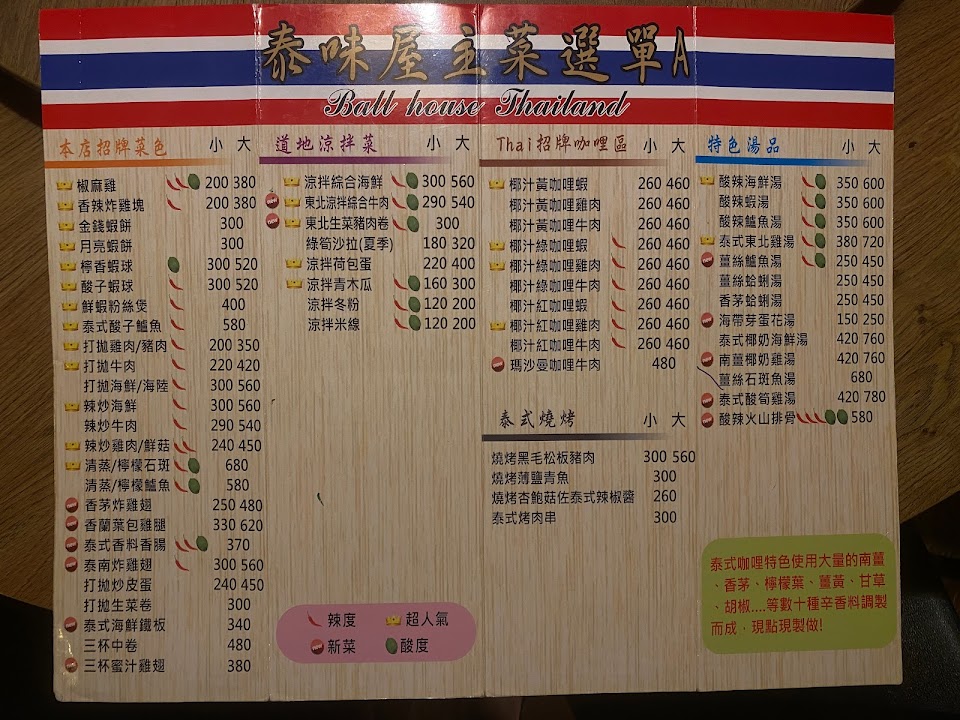 泰味屋主菜選單A
Ball house Thailand
本店招牌菜色 小 大
椒麻雞 200 380
香辣炸雞塊 200 380
金錢蝦餅 300
月亮蝦餅 300
檸香蝦球 300 520
酸子蝦球 300 520
鮮蝦粉絲煲 400
泰式酸子鱸魚 580
打拋雞肉/豬肉 200 350
打拋牛肉 220 420
打拋海鮮/海陸 300 560
辣炒海鮮 300 560
辣炒牛肉 290 540
辣炒雞肉/鮮菇 240 450
清蒸/檸檬石斑 680
清蒸/檸檬鱸魚 580
香茅炸雞翅 250 480
香蘭葉包雞腿 330 620
泰式香料香腸 370
泰南炸雞翅 300 560
打拋炒皮蛋 240 450
打拋生菜卷 300
泰式海鮮鐵板 340
三杯中卷 480
三杯蜜汁雞翅 380
道地涼拌菜 小 大
涼拌綜合海鮮 300 560
東北涼拌綜合牛肉 290 540
東北生菜豬肉卷 300
綠筍沙拉(夏季) 180 320
涼拌荷包蛋 220 400
涼拌青木瓜 160 300
涼拌冬粉 120 200
涼拌米線 120 200
辣度 超人氣
新菜 酸度
Thai招牌咖哩區 小 大
椰汁黃咖哩蝦 260 460
椰汁黃咖哩雞肉 260 460
椰汁黃咖哩牛肉 260 460
椰汁綠咖哩蝦 260 460
椰汁綠咖哩雞肉 260 460
椰汁綠咖哩牛肉 260 460
椰汁紅咖哩蝦 260 460
椰汁紅咖哩雞肉 260 460
椰汁紅咖哩牛肉 260 460
瑪沙曼咖哩牛肉 480
泰式燒烤 小 大
燒烤黑毛松板豬肉 300 560
燒烤薄鹽青魚 300
燒烤杏鮑菇佐泰式辣椒醬 260
泰式烤肉串 300
特色湯品 小 大
酸辣海鮮湯 350 600
酸辣蝦湯 350 600
酸辣鱸魚湯 350 600
泰式東北雞湯 380 720
薑絲鱸魚湯 250 450
薑絲蛤蜊湯 250 450
香茅蛤蜊湯 250 450
海帶芽蛋花湯 150 250
泰式椰奶海鮮湯 420 760
南薑椰奶雞湯 420 760
薑絲石斑魚湯 680
泰式酸筍雞湯 420 780
酸辣火山排骨 580
泰式咖哩特色使用大量的南薑
、香茅、檸檬葉、薑黃、甘草
、胡椒....等數十種辛香料調製
而成，現點現製做!